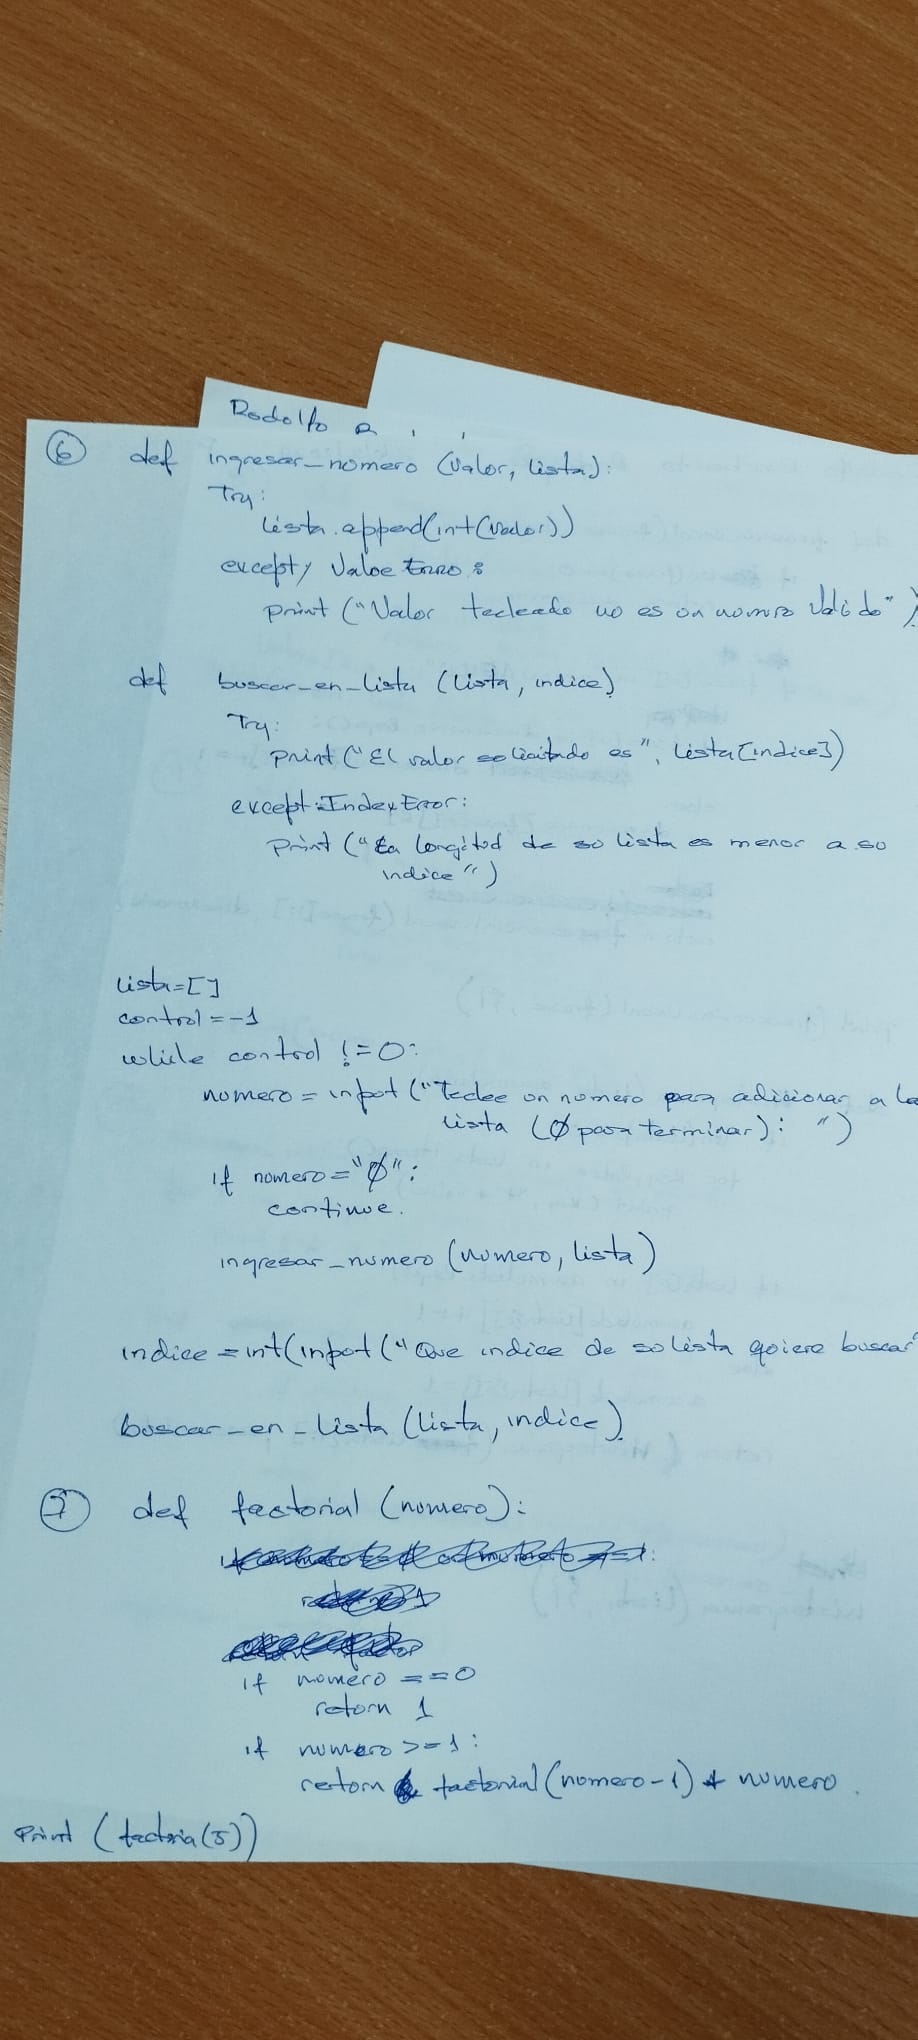 Rodolfo a
⑥ def ingresar_numero (valor, lista):
Try:
lista.append(int(valor))
except, Value Erro:
print ("Valor tecleado no es un numero Valido")
def buscar_en_lista (lista, indice)
Try:
print ("El valor solicitado es", lista[indice])
except:IndexError:
Print ("La longitud de su lista es menor a su
indice")
lista=[]
control=-1
while control !=0:
numero = input ("Teclee un numero para adicionar a la
lista (0 para terminar): ")
if numero="0":
continue.
ingresar_numero (numero, lista)
indice =int(input("Que indice de su lista quiere buscar
buscar_en_lista (lista, indice)
⑦ def factorial (numero):
if numero ==0
return 1
if numero >=1:
return factorial (numero-1) * numero.
Print (factoria(5))